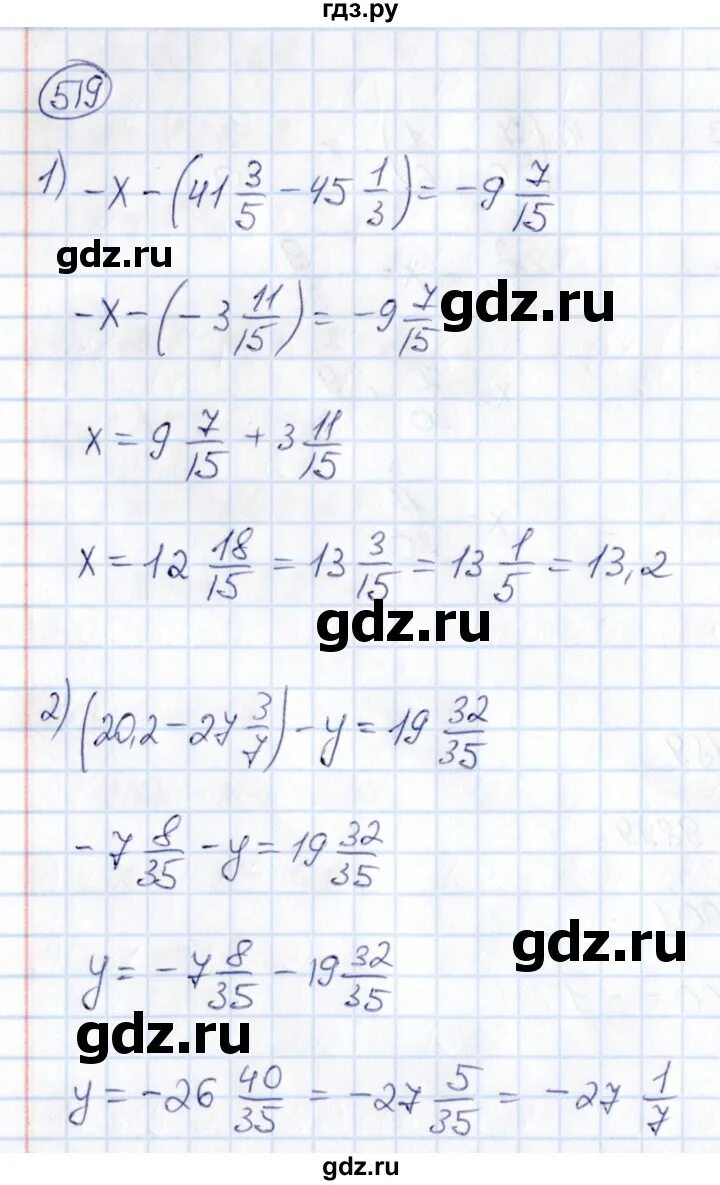 гдз.ру
519
1) -x-(41 3/5 - 45 1/3) = -9 7/15
gdz.ru
-x-(-3 11/15) = -9 7/15
gdz.ru
x = 9 7/15 + 3 11/15
x = 12 18/15 = 13 3/15 = 13 1/5 = 13,2
gdz.ru
2) (20,2 - 27 3/7) - y = 19 32/35
-7 8/35 - y = 19 32/35
gdz.ru
y = -7 8/35 - 19 32/35
gdz.ru
y = -26 40/35 = -27 5/35 = -27 1/7
gdz.ru